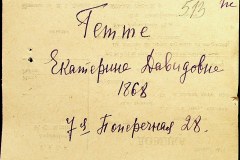 513
Гетте
Екатерина Давидовна
1868
7я Поперечная 28.